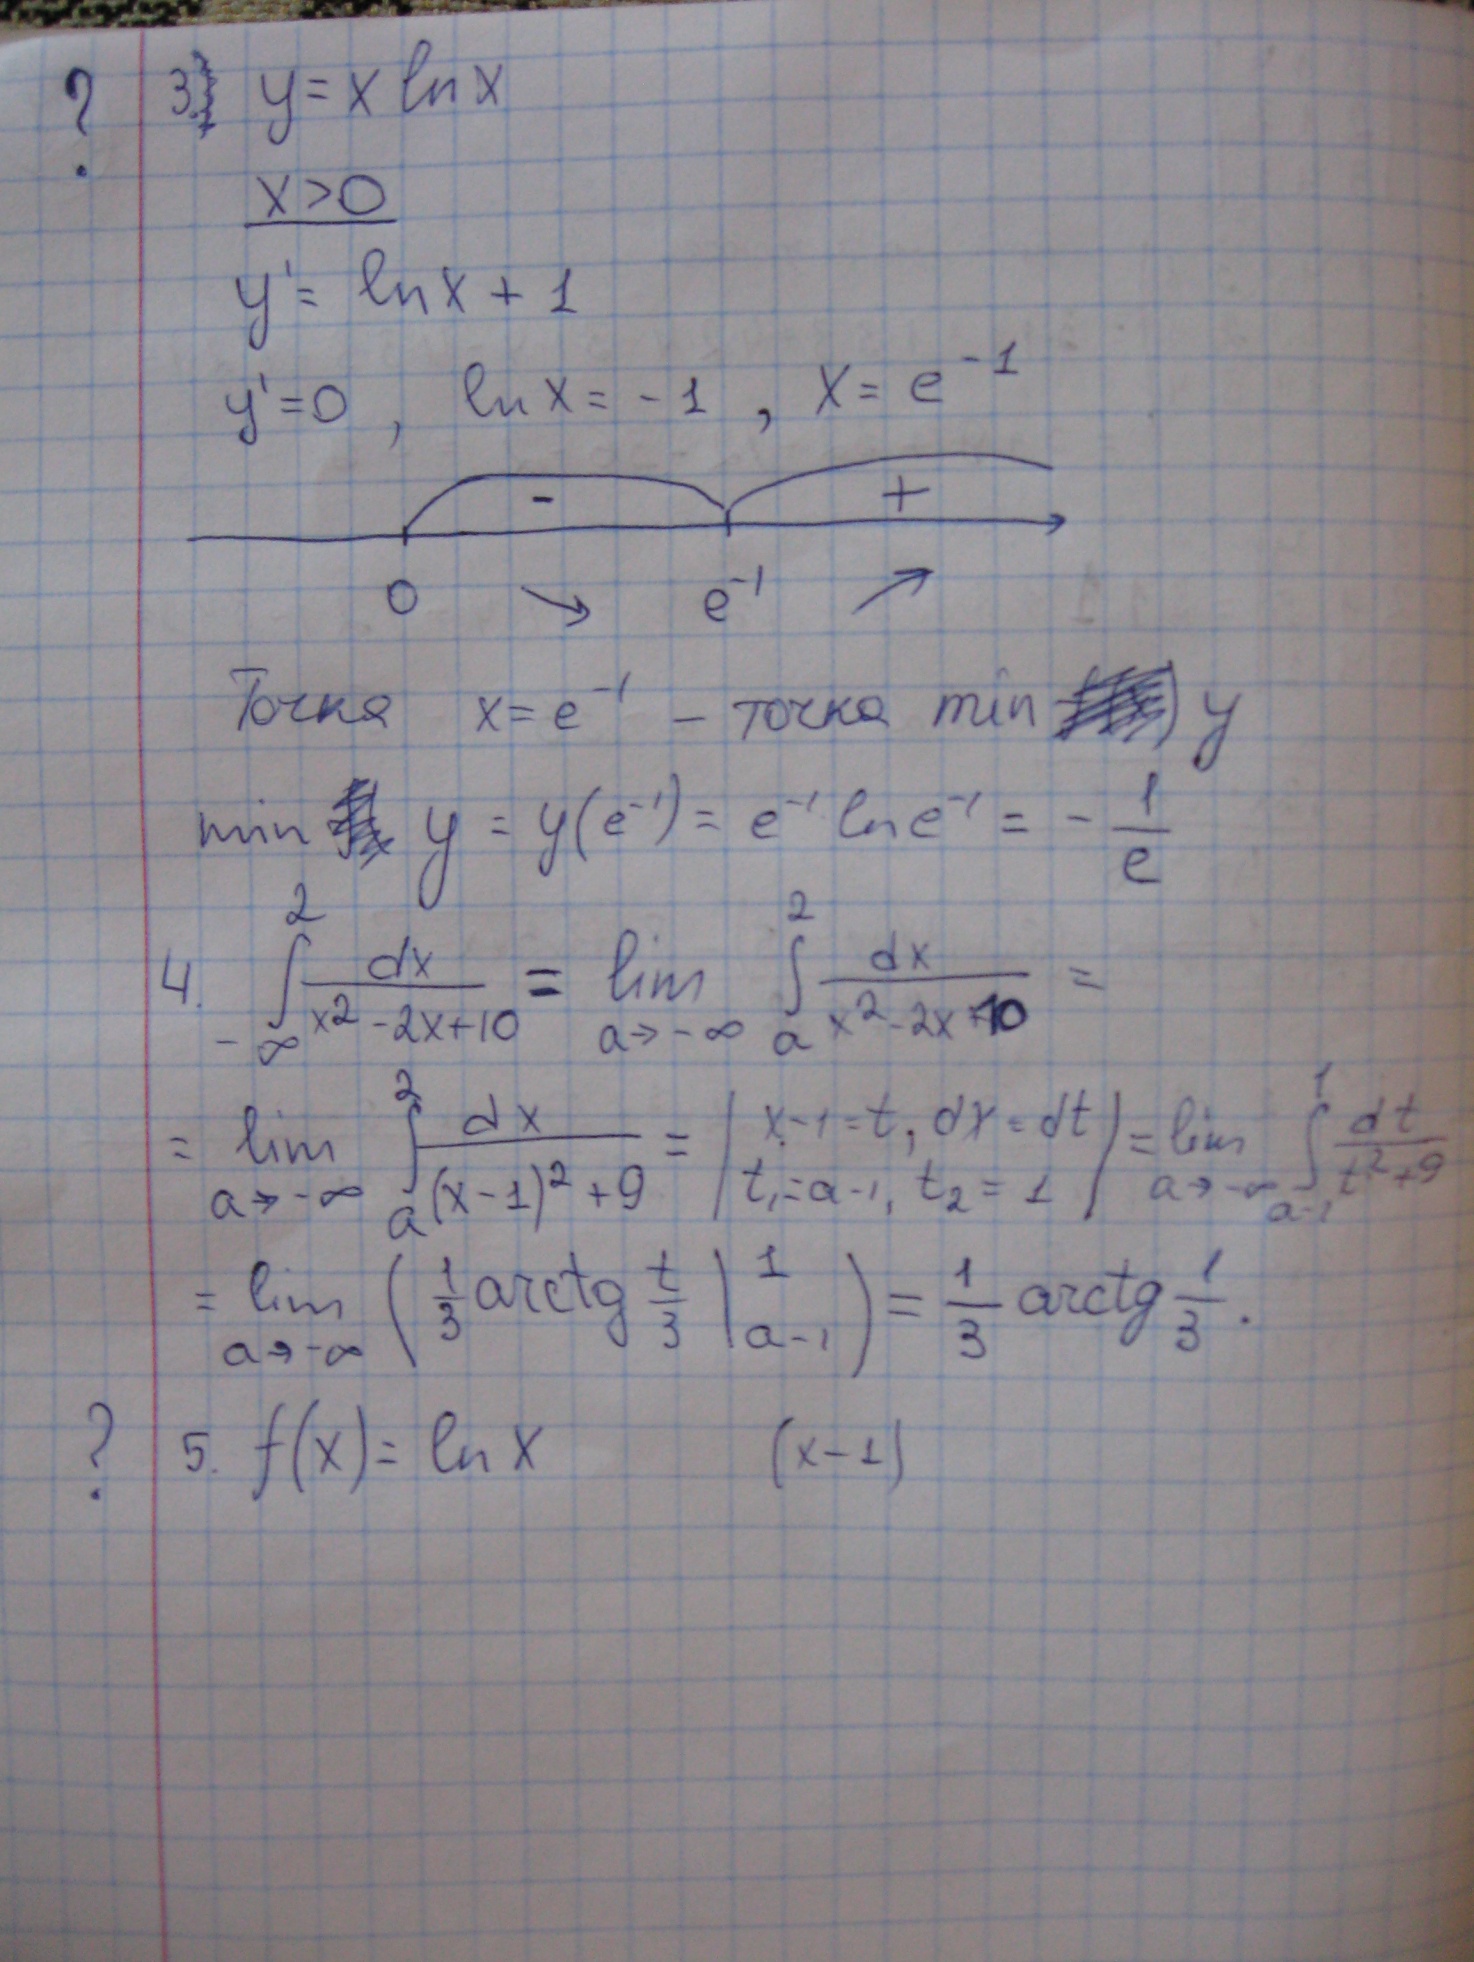 ? 3. y = x ln x
x > 0
y' = ln x + 1
y' = 0 , ln x = -1 , x = e^{-1}
- +
0 ↘ e^{-1} ↗
Точка x = e^{-1} – точка min y
min y = y(e^{-1}) = e^{-1} ln e^{-1} = -\frac{1}{e}
4. \int_{-∞}^{2} \frac{dx}{x^2-2x+10} = \lim_{a→-∞} \int_{a}^{2} \frac{dx}{x^2-2x+10} =
= \lim_{a→-∞} \int_{a}^{2} \frac{dx}{(x-1)^2+9} = | x-1=t, dx=dt t_1=a-1, t_2=1 | = \lim_{a→-∞} \int_{a-1}^{1} \frac{dt}{t^2+9}
= \lim_{a→-∞} ( \frac{1}{3} arctg \frac{t}{3} |_{a-1}^{1} ) = \frac{1}{3} arctg \frac{1}{3}.
? 5. f(x) = ln x (x-1)